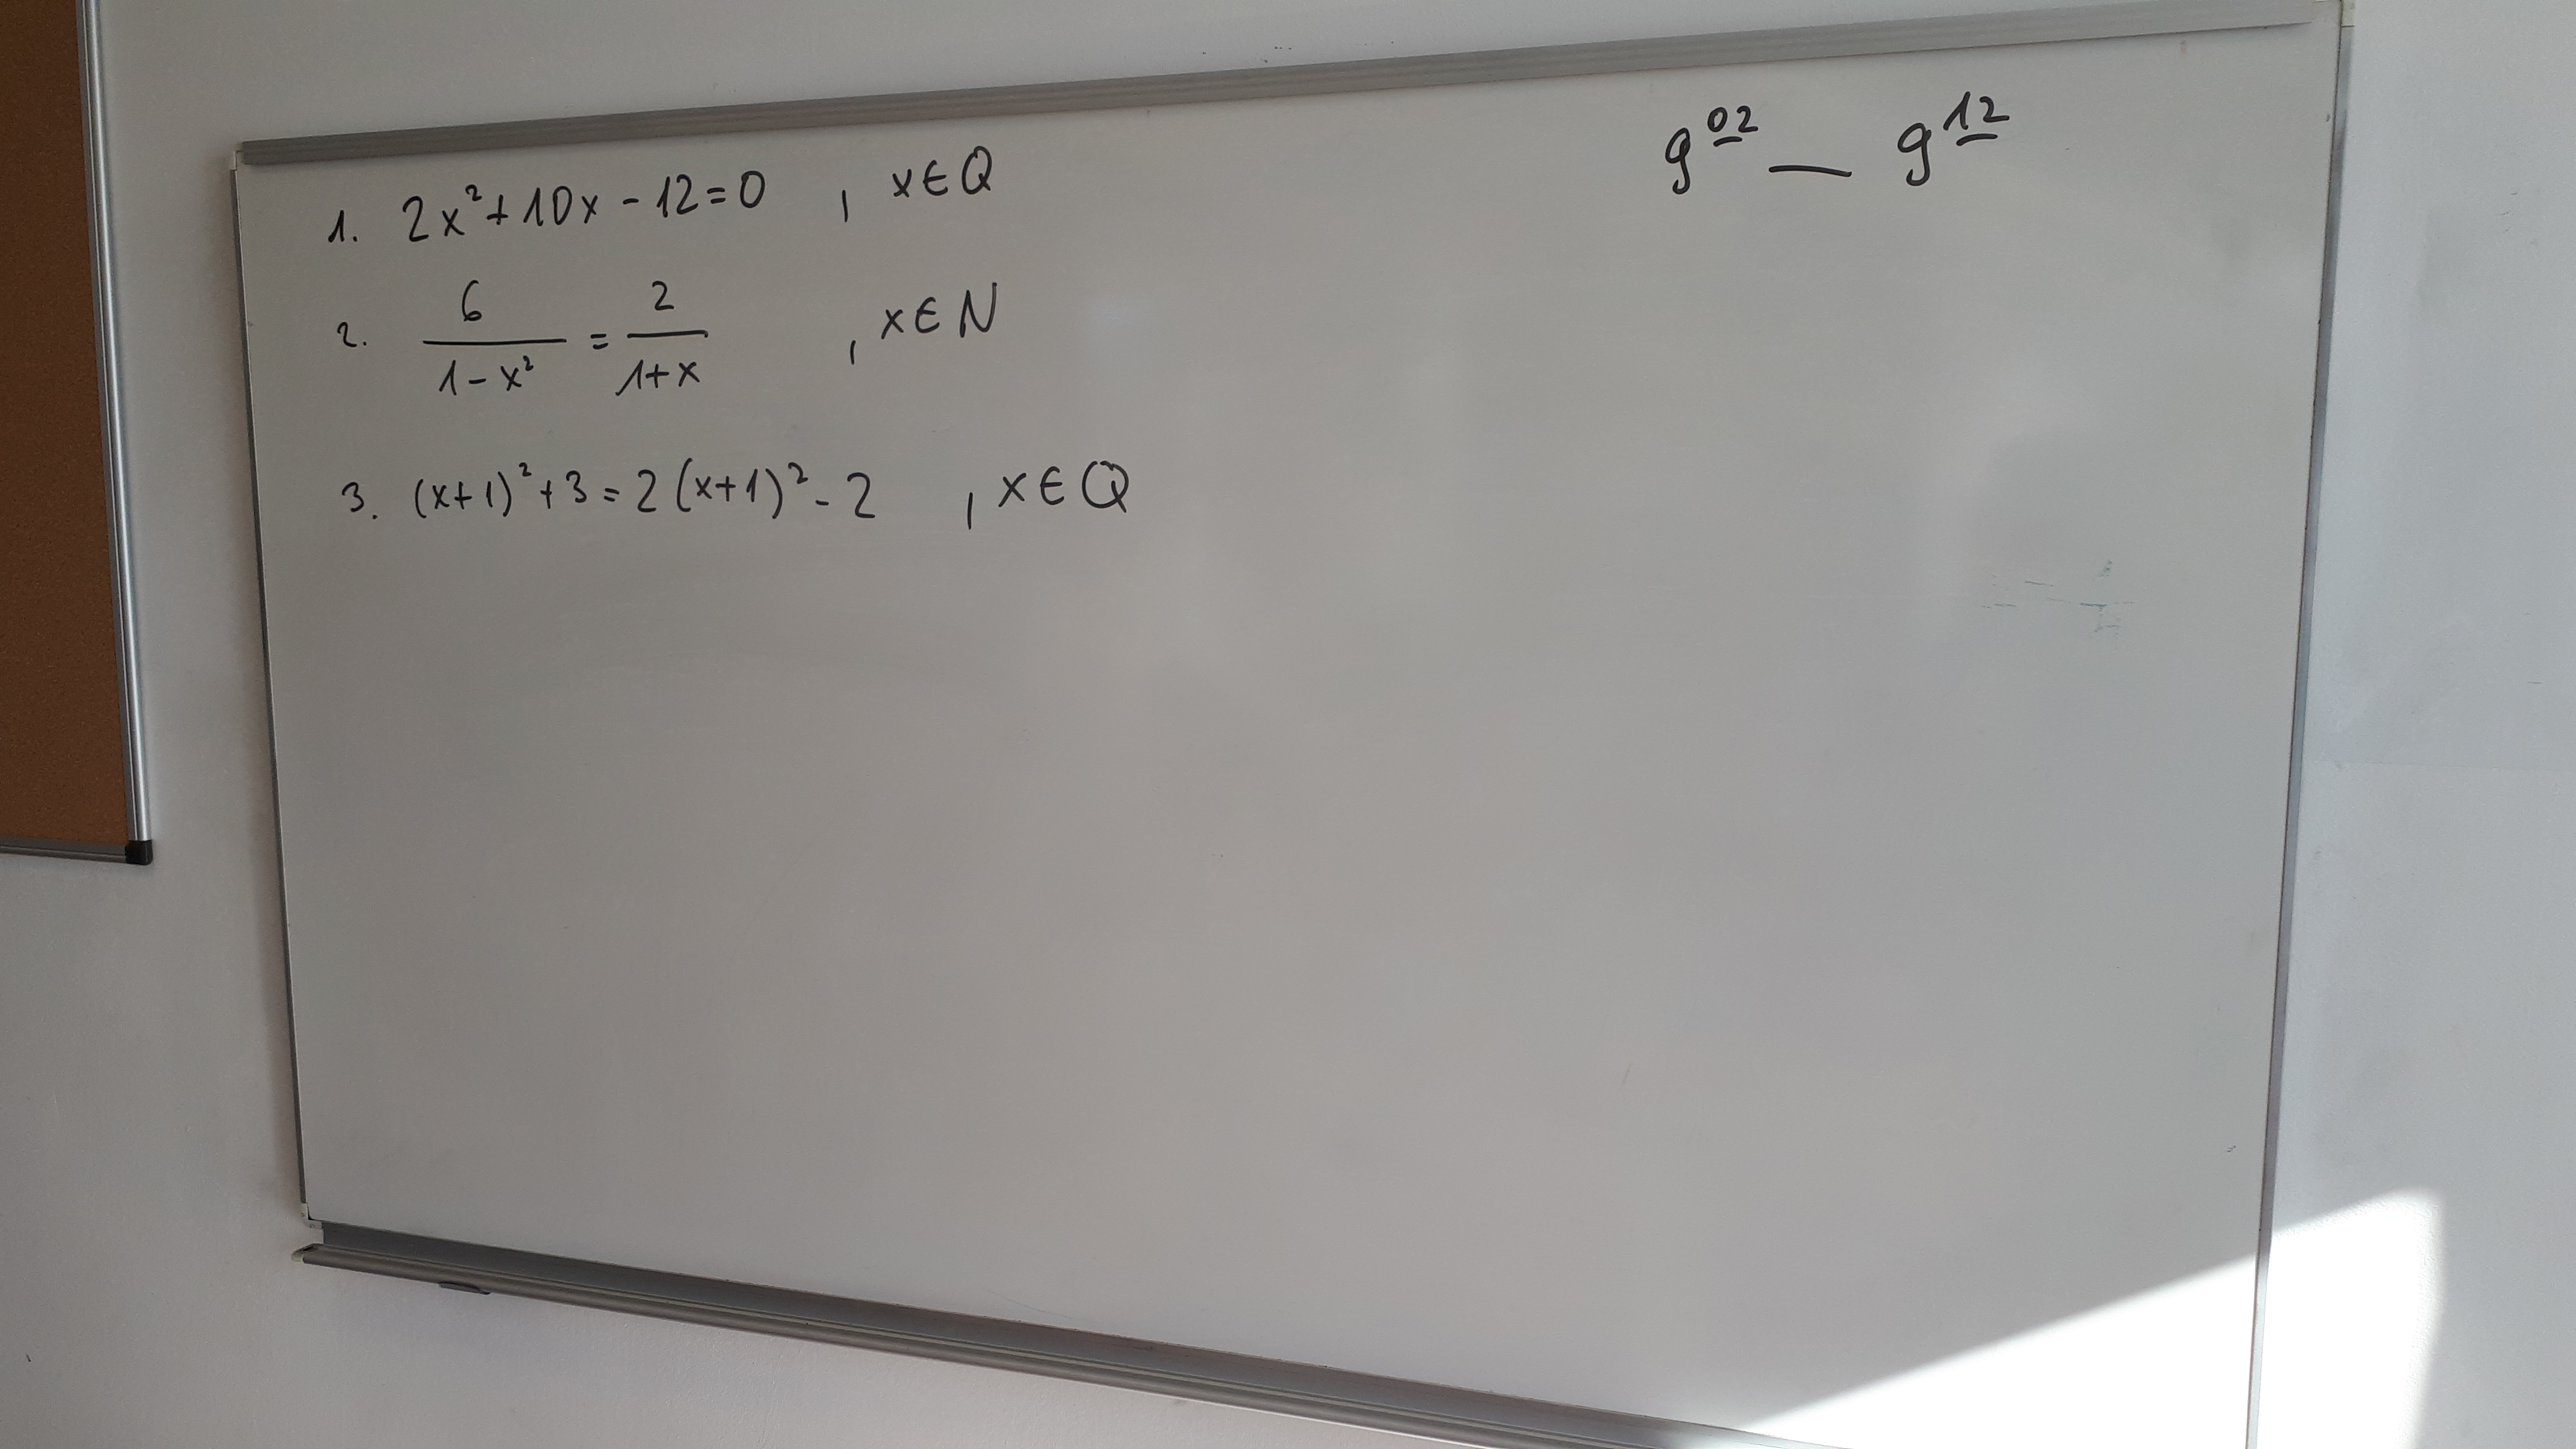 9⁰² — 9¹²
1. 2x²+10x-12=0 , x∈Q
2. 6/(1-x²) = 2/(1+x) , x∈N
3. (x+1)²+3=2(x+1)²-2 , x∈Q